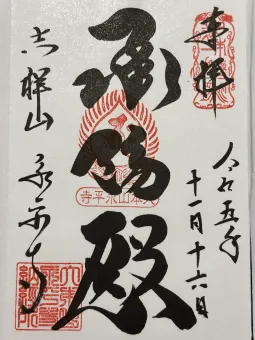 奉拝
令和五年
十一月十六日
承陽殿
大本山永平寺
吉祥山
永平寺